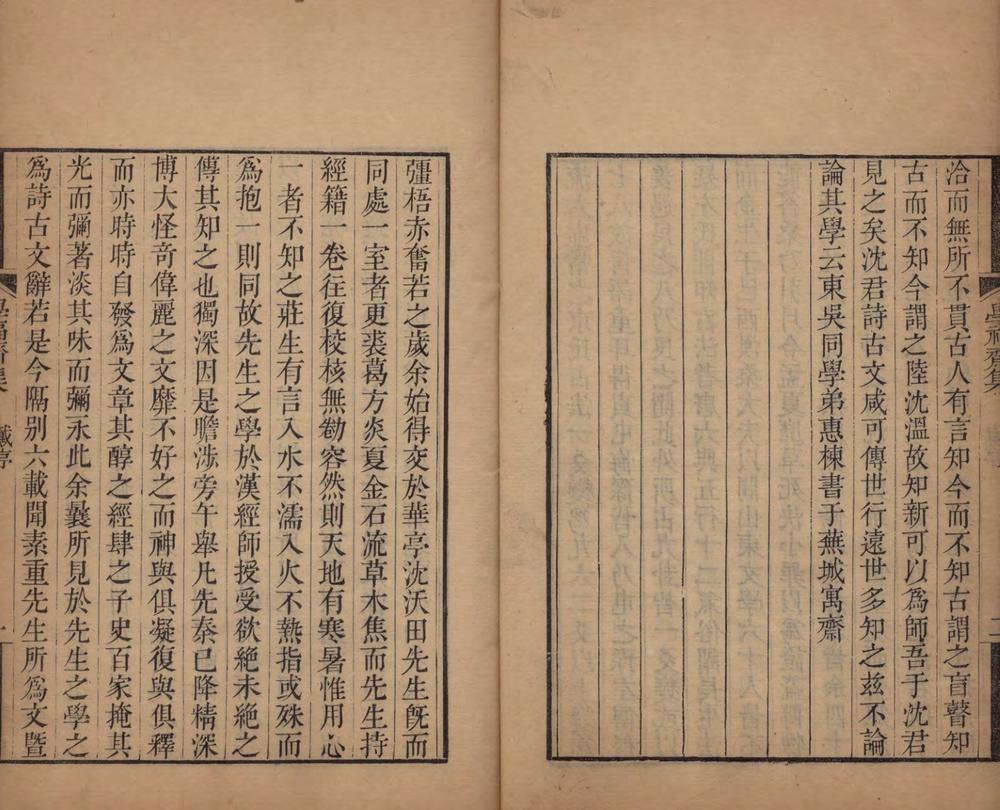 洽而無所不貫古人有言知今而不知古謂之盲瞽知
古而不知今謂之陸沈溫故知新可以爲師吾于沈君
見之矣沈君詩古文咸可傳世行遠世多知之茲不論
論其學云東吳同學弟惠棟書于蕪城寓齋
彊梧赤奮若之歲余始得交於華亭沈沃田先生旣而
同處一室者更裘葛方炎夏金石流草木焦而先生持
經籍一卷往復校核無勌容然則天地有寒暑惟用心
一者不知之莊生有言入水不濡入火不熱指或殊而
爲抱一則同故先生之學於漢經師授受欲絶未絶之
傳其知之也獨深因是瞻涉旁午舉凡先秦已降精深
博大怪奇偉麗之文靡不好之而神與俱凝復與俱釋
而亦時時自發爲文章其醇之經肆之子史百家掩其
光而彌著淡其味而彌永此余曩所見於先生之學之
爲詩古文辭若是今隔别六載聞素重先生所爲文曁
學福齋集
戴序
一